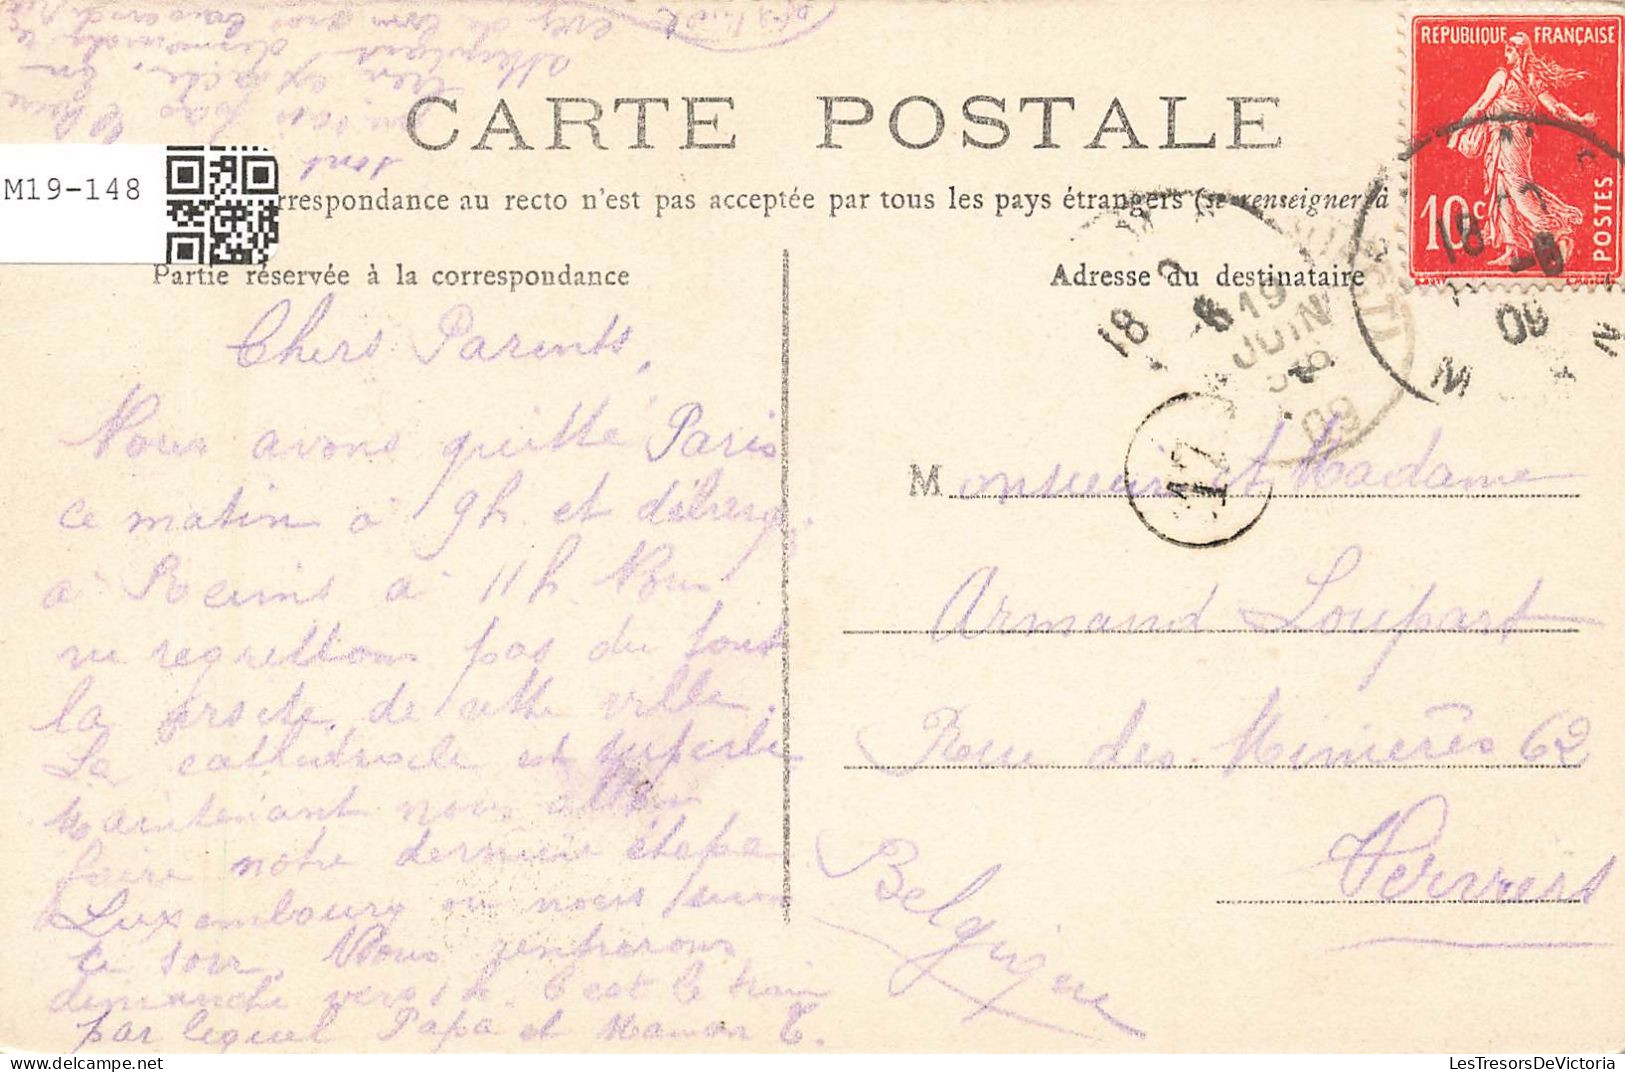 CARTE POSTALE
M19-148
rrespondance au recto n'est pas acceptée par tous les pays étrangers (se renseigner à
Partie réservée à la correspondance
Chers Parents,
Nous avons quitté Paris
ce matin à 9h et débarq.
à Reims à 11h. Nous
ne regrettons pas du tout
la visite de cette ville.
La cathédrale est superbe
Maintenant nous allons
faire notre dernière étape
Luxembourg où nous serons
ce soir. Nous rentrerons
demanche vers 1h. C'est le train
par lequel Papa et Maman T.
sont
REPUBLIQUE FRANÇAISE
10c
POSTES
Adresse du destinataire
18
19
JUIN
09
17
Monsieur et Madame
Armand Loupart
Rue des Minières 62
Verviers
Belgique
LesTresorsDeVictoria